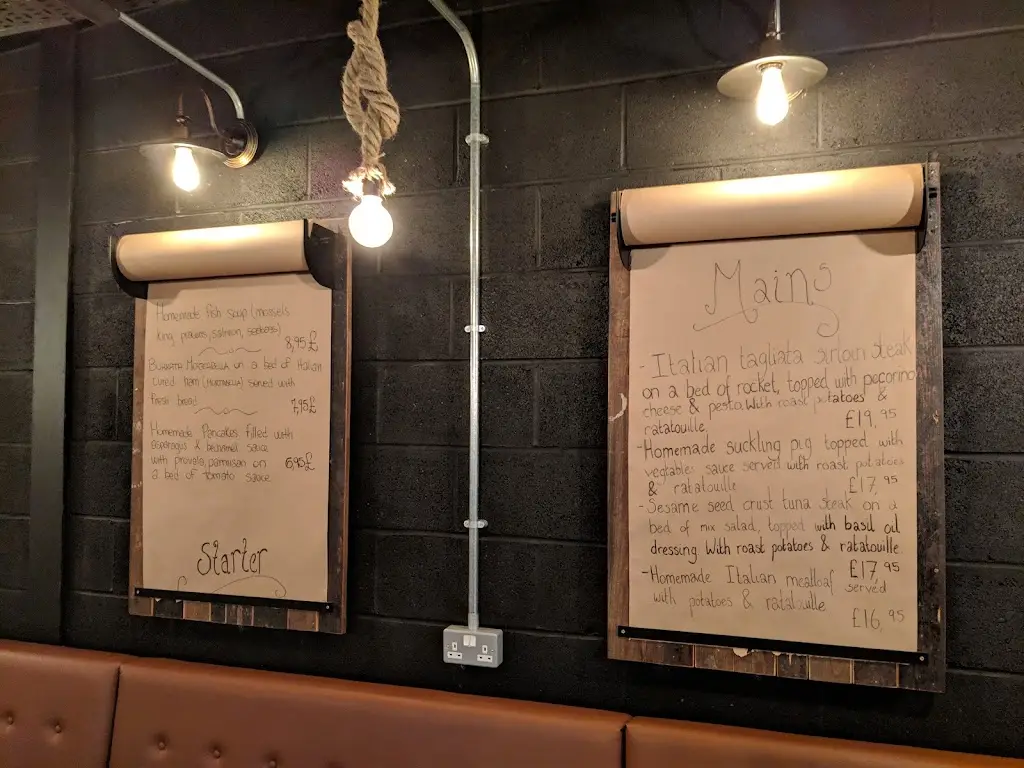 Homemade fish soup (mussels
king prawns, salmon, seabass)
8,95£
BURRATA MOZZARELLA on a bed of Italian
cured ham (MORTADELLA) served with
fresh bread
7,95£
Homemade Pancakes filled with
asparagus & bechamel sauce
with provola, parmisan on
a bed of tomato sauce
6,95£
Starter
Mains
- Italian tagliata sirloin steak
on a bed of rocket, topped with pecorino
cheese & pesto. With roast potatoes &
ratatouille.
£19,95
- Homemade suckling pig topped with
vegtable sauce served with roast potatoes
& ratatouille
£17,95
- Sesame seed crust tuna steak on a
bed of mix salad, topped with basil oil
dressing With roast potatoes & ratatouille
£17,95
- Homemade Italian meatloaf served
with potatoes & ratatouille
£16,95